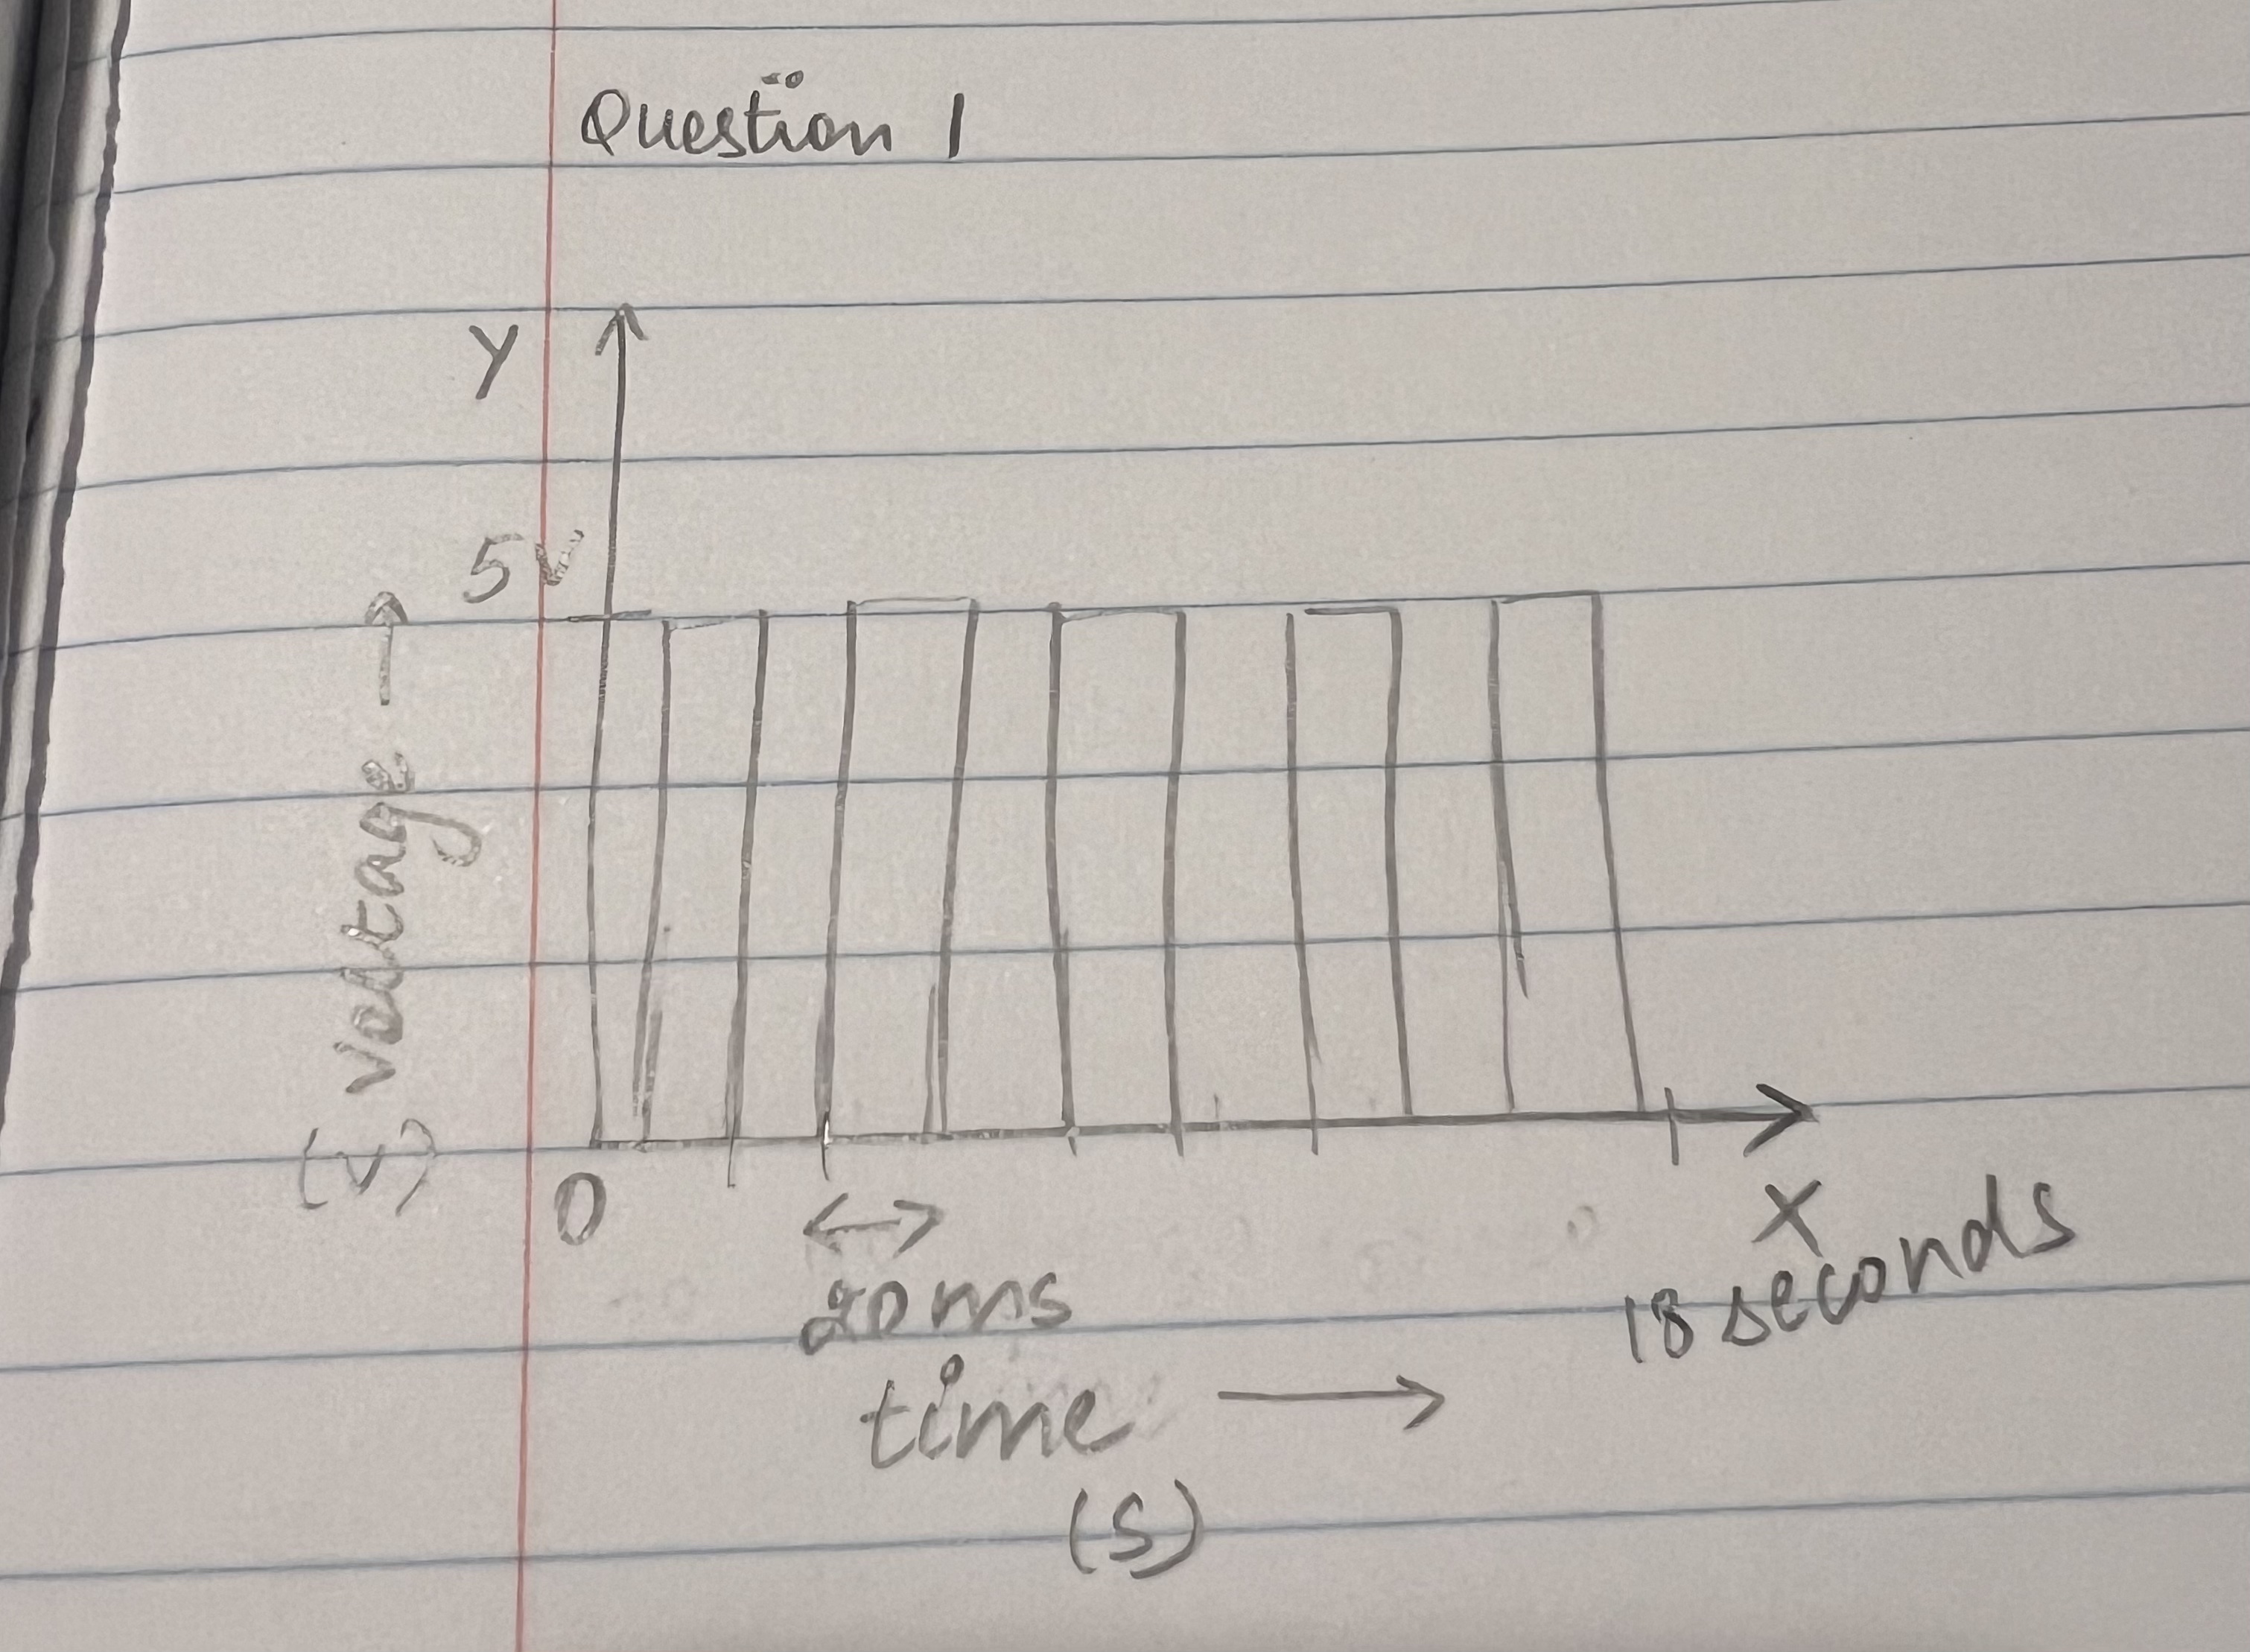 Question 1
Y
5V
Voltage →
(V)
0
X
18 seconds
20ms
time →
(S)